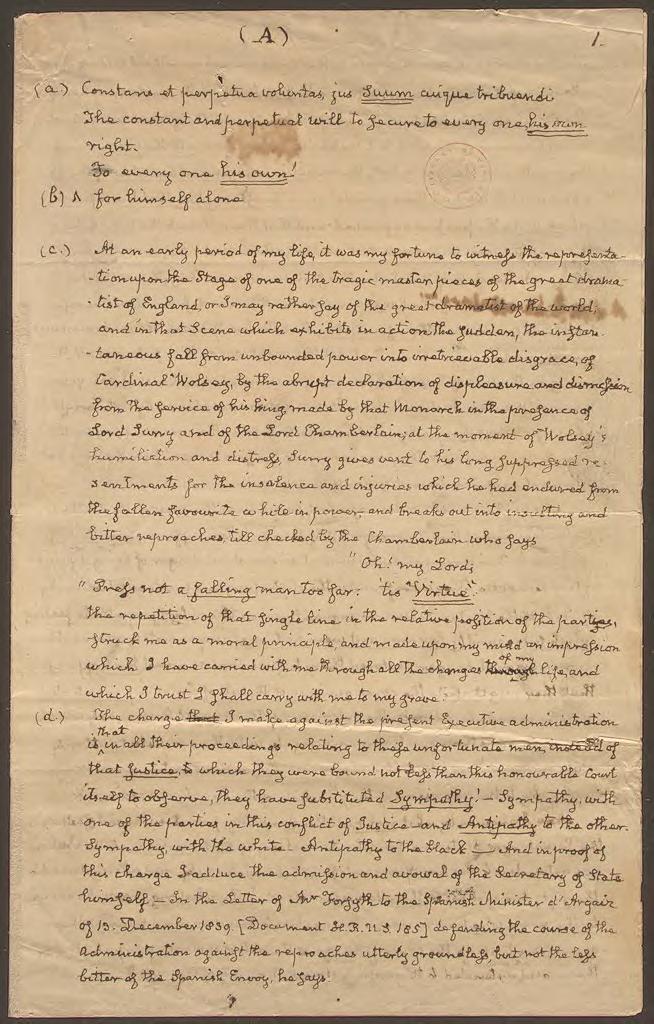 (A) 1.
(a.) Constans et perpetua voluntas, jus suum cuique tribuendi.
The constant and perpetual will to secure to every one his own
right.
To every one his own!
(b) ^ for himself alone
(c.) At an early period of my life, it was my fortune to witness the representa-
-tion upon the Stage of one of the tragic master pieces of the great drama-
-tist of England, or I may rather say of the great dramatist of the world,
and in that Scene which exhibits in action the sudden, the instan-
-taneous fall from unbounded power into irretrievable disgrace, of
Cardinal Wolsey, by the abrupt declaration of displeasure and dismission
from the service of his King, made by that Monarch in the presence of
Lord Surry and of the Lord Chamberlain; at the moment of Wolsey's
humiliation and distress, Surry gives vent to his long suppressed re-
sentments for the insolence and injuries which he had endured from
the fallen favourite while in power, and breaks out into insulting and
bitter reproaches, till checked by the Chamberlain who says
"Oh! my Lord;
"Press not a falling man too far: 'tis Virtue."
the repetition of that single line in the relative position of the parties,
struck me as a moral principle, and made upon my mind an impression
which I have carried with me through all the changes of my life, and
which I trust I shall carry with me to my grave.
(d.) The charge I make against the present Executive administration
is that in all their proceedings relating to these unfortunate men, instead of
that Justice, to which they were bound not less than this honourable Court
itself to observe, they have substituted Sympathy! - Sympathy, with
one of the parties in this conflict of Justice and Antipathy to the other.
Sympathy, with the white - Antipathy to the black - And in proof of
this charge I adduce the admission and avowal of the Secretary of State
himself - In the Letter of Mr Forsyth to the Spanish Minister d'Argaiz
of 13. December 1839. [Document H.R.N.S. 185] defending the course of the
Administration against the reproaches utterly groundless, but not the less
bitter of the Spanish Envoy, he says